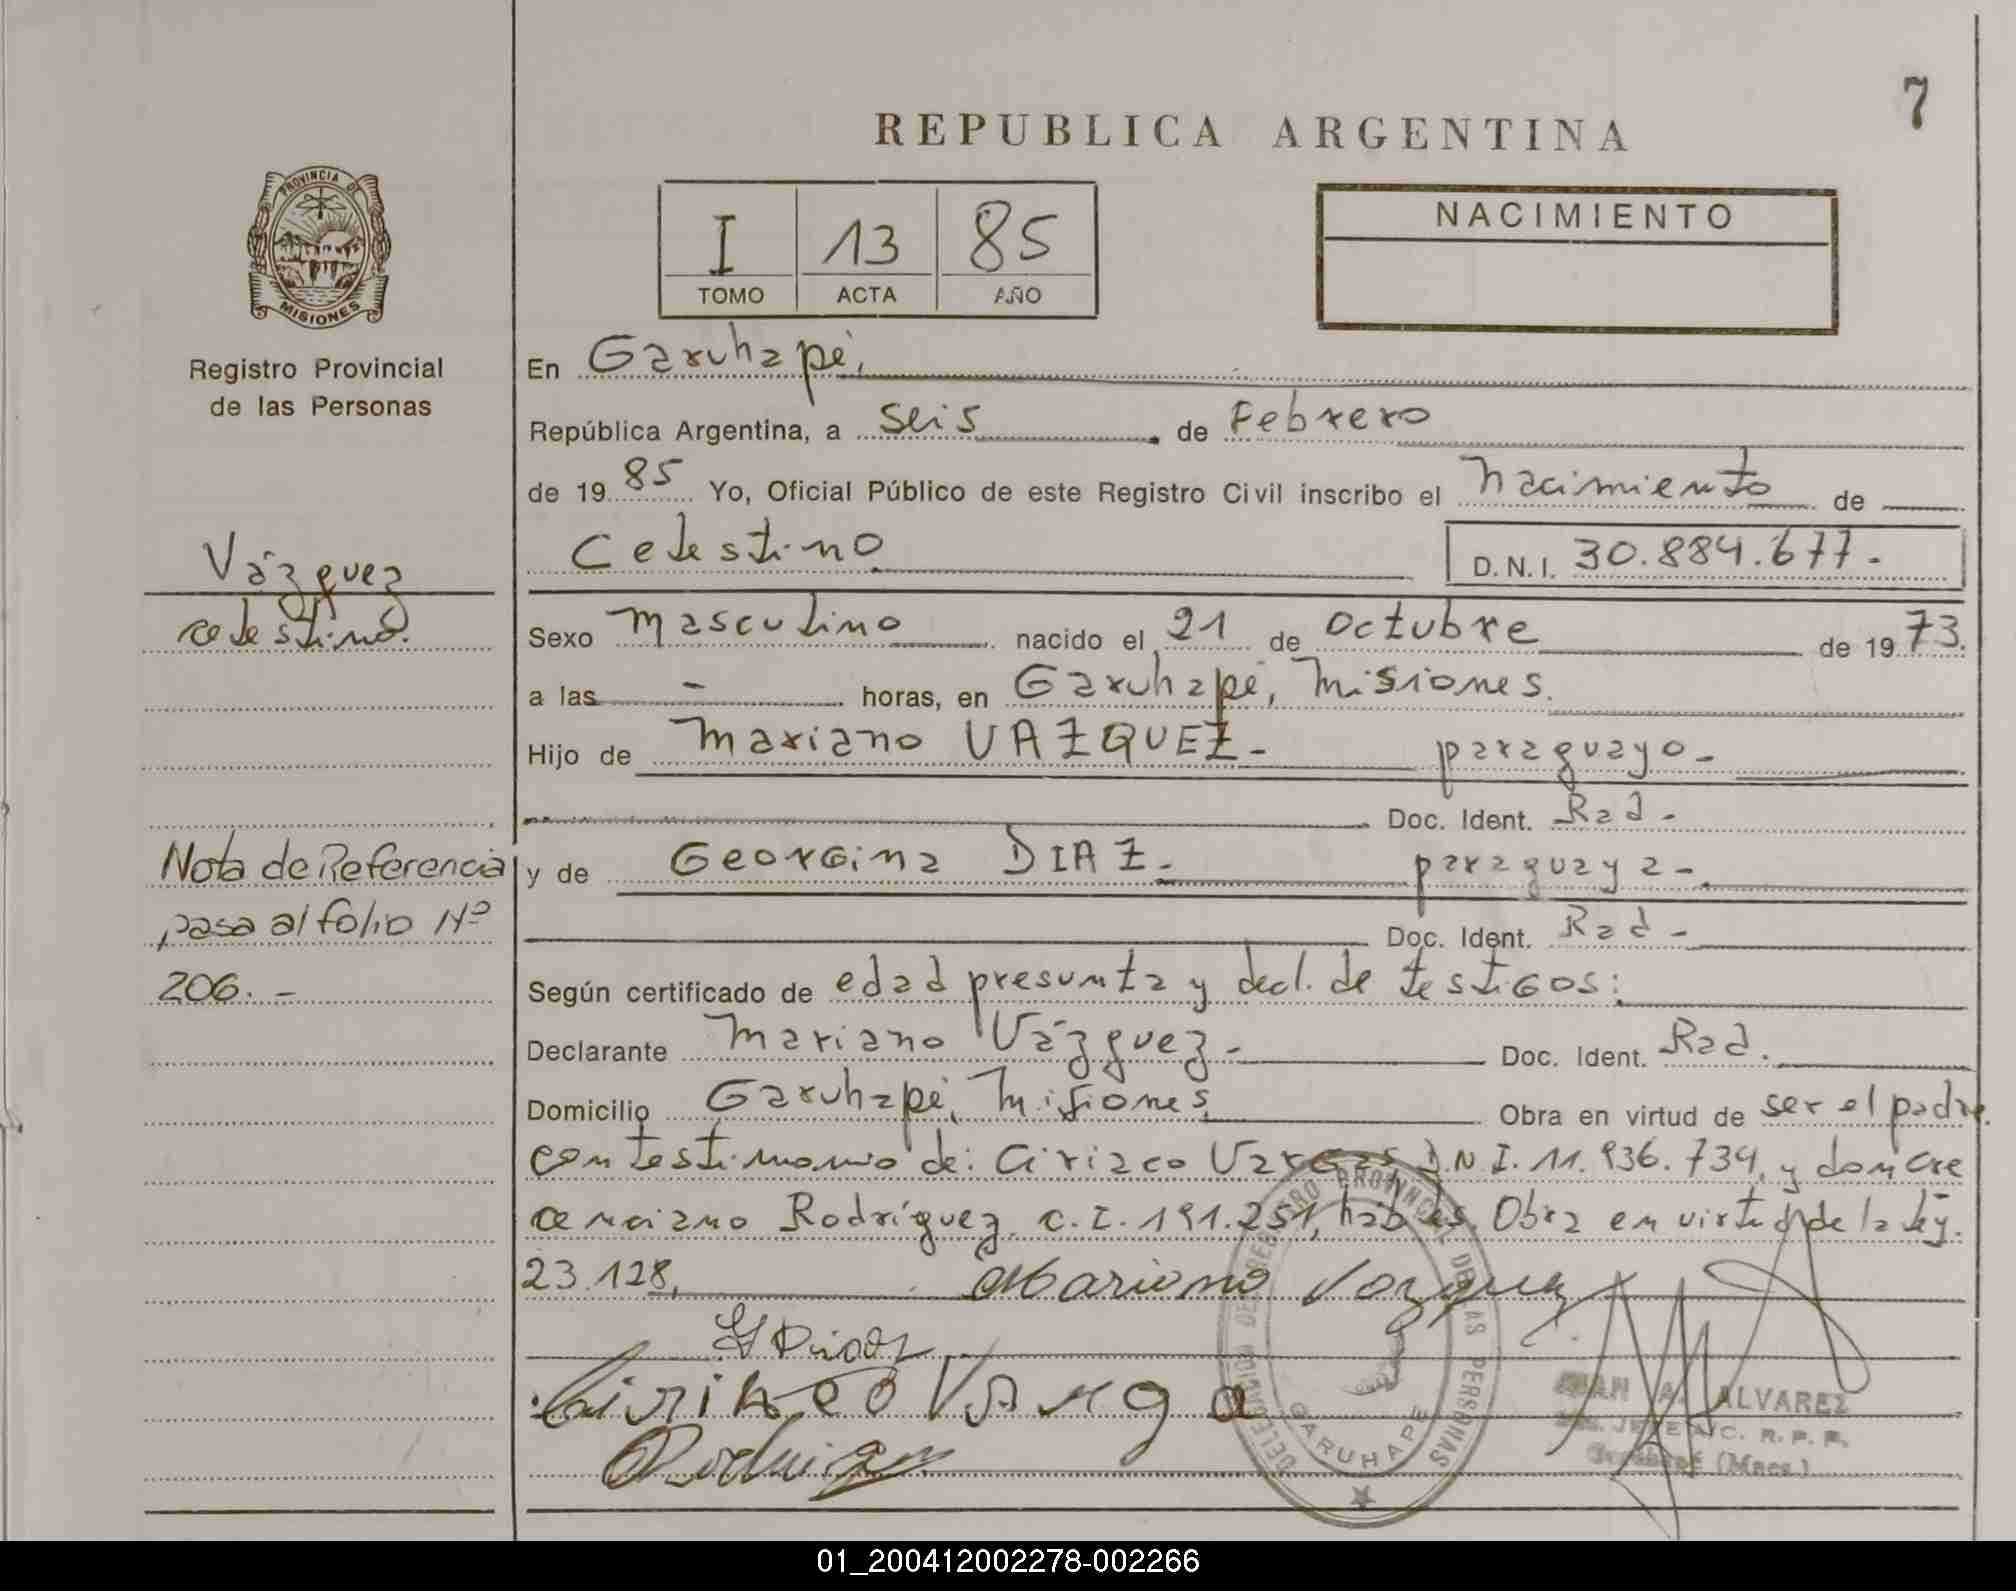 7
REPUBLICA ARGENTINA
PROVINCIA DE
MISIONES
I 13 85
TOMO ACTA AÑO
NACIMIENTO
Registro Provincial
de las Personas
En Garuhapé,
República Argentina, a seis de Febrero
de 19 85 Yo, Oficial Público de este Registro Civil inscribo el nacimiento de
Celestino D.N.I. 30.884.677.-
Vázquez
celestino.
Sexo masculino nacido el 21 de octubre de 1973.
a las - horas, en Garuhapé, Misiones.
Hijo de Mariano VAZQUEZ- paraguayo-
Doc. Ident. Rad-
y de Georgina DIAZ- paraguaya-
Doc. Ident. Rad-
Nota de Referencia
pasa al folio Nº
206.-
Según certificado de edad presunta y decl. de testigos:
Declarante Mariano Vázquez- Doc. Ident. Rad.
Domicilio Garuhapé, Misiones Obra en virtud de ser el padre.
con testimonio de: Ciriaco Vargas, D.N.I. 11.936.734, y don Cre
cenciano Rodríguez, C.I. 191.251, hábiles. Obra en virtud de la ley.
23.128,
Mariano Vazquez
Ciriaco Varga
DELEGACION DE REGISTRO PROVINCIAL DE LAS PERSONAS
GARUHAPE
JUAN A. ALVAREZ
JEFE A/C. R. P. P.
Garuhapé (Mnes.)
01_200412002278-002266